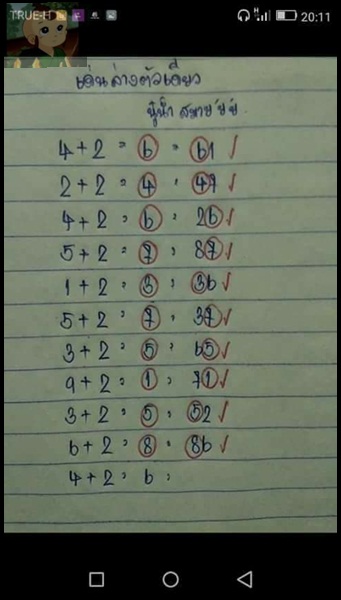 TRUE-H 20:11
เด่นล่างตัวเดียว
4+2 = 6 = 61 ✓
2+2 = 4 = 47 ✓
4+2 = 6 = 26 ✓
5+2 = 7 = 87 ✓
1+2 = 3 = 36 ✓
5+2 = 7 = 37 ✓
3+2 = 5 = 65 ✓
9+2 = 1 = 71 ✓
3+2 = 5 = 52 ✓
6+2 = 8 = 86 ✓
4+2 = 6 =